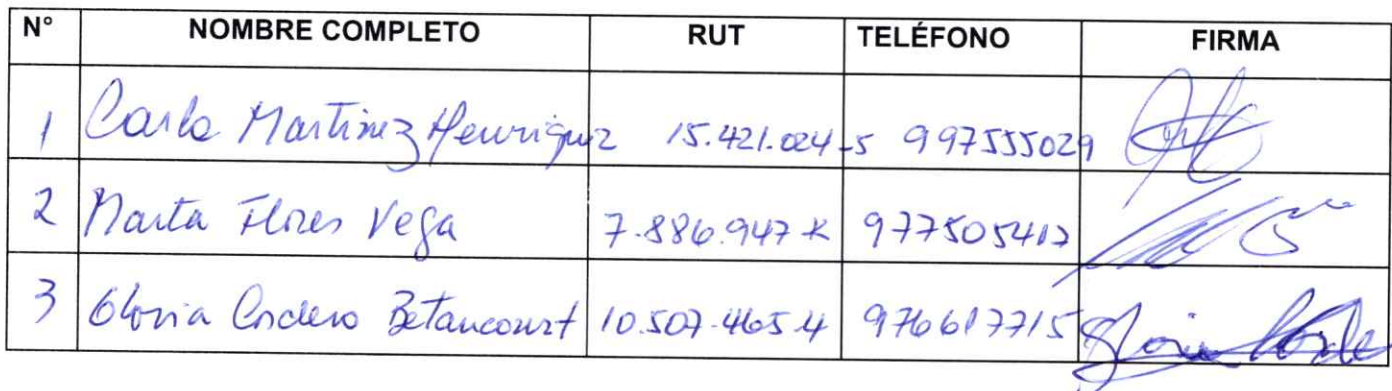 N° NOMBRE COMPLETO RUT TELÉFONO FIRMA
1 Carla Martinez Henriquez 15.421.024-5 997555029
2 Marta Flores Vega 7.886.947-K 977505417
3 Gloria Cordero Betancourt 10.507.465-4 976617715